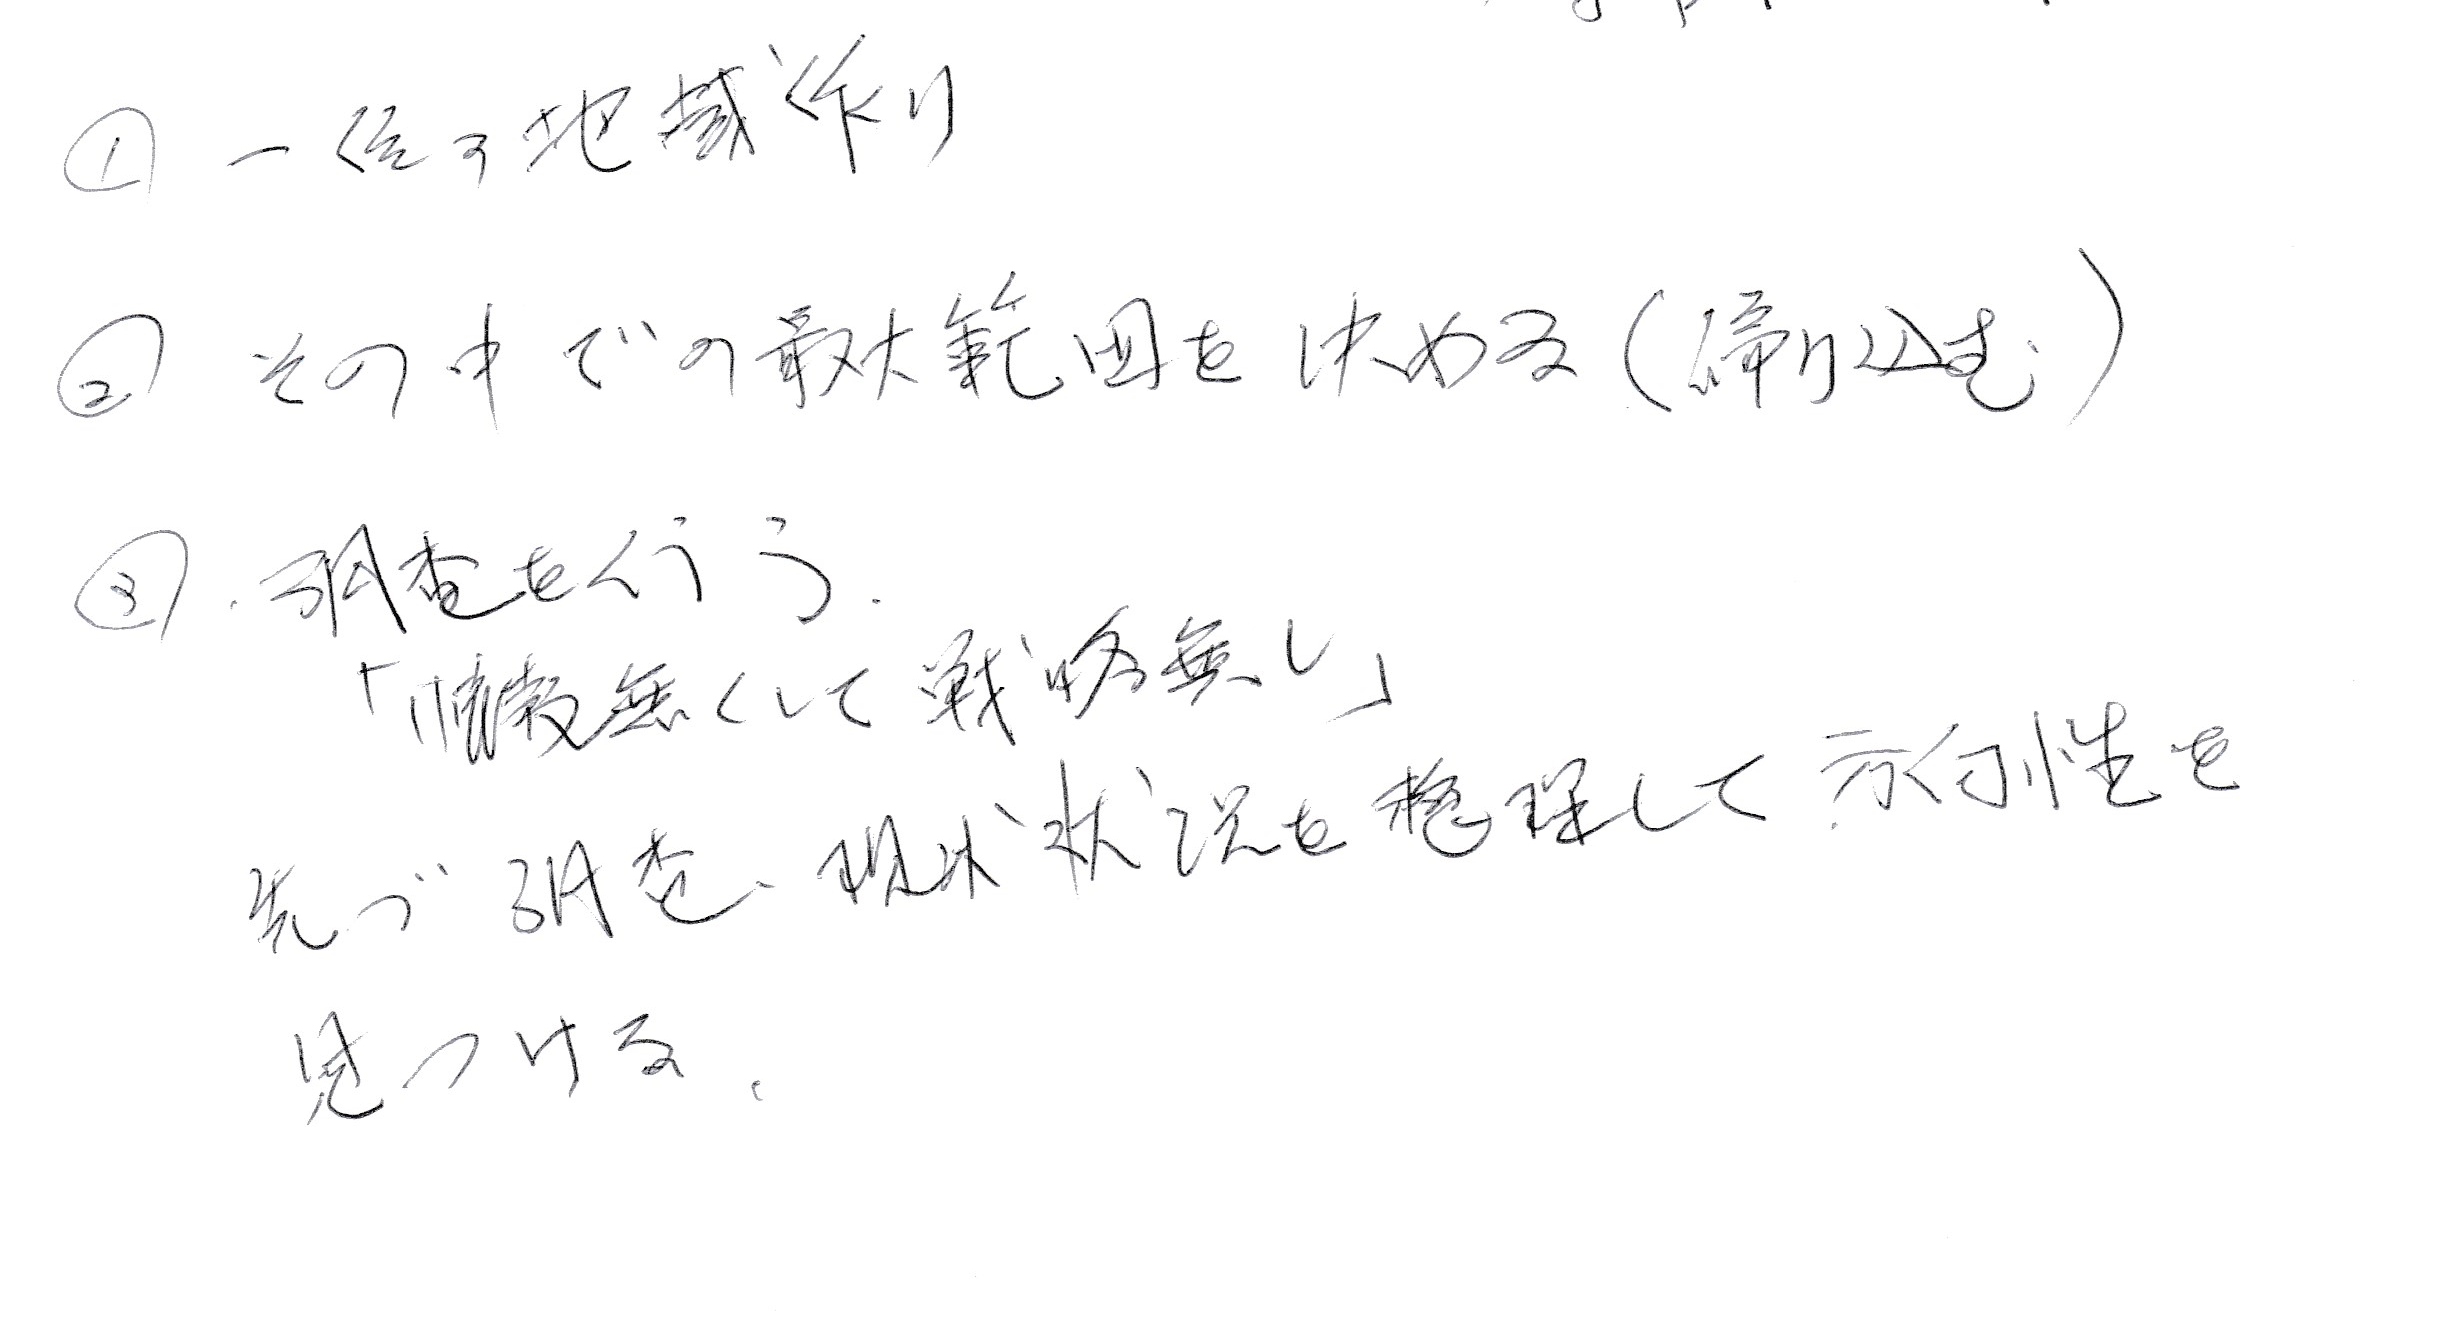 ① 一位の地域作り
② その中での最大範囲を決める(締り込む)
③.調査を行う.
「情報無くして戦略無し」
先づ調査、現状状況を整理して方向性を
見つける.